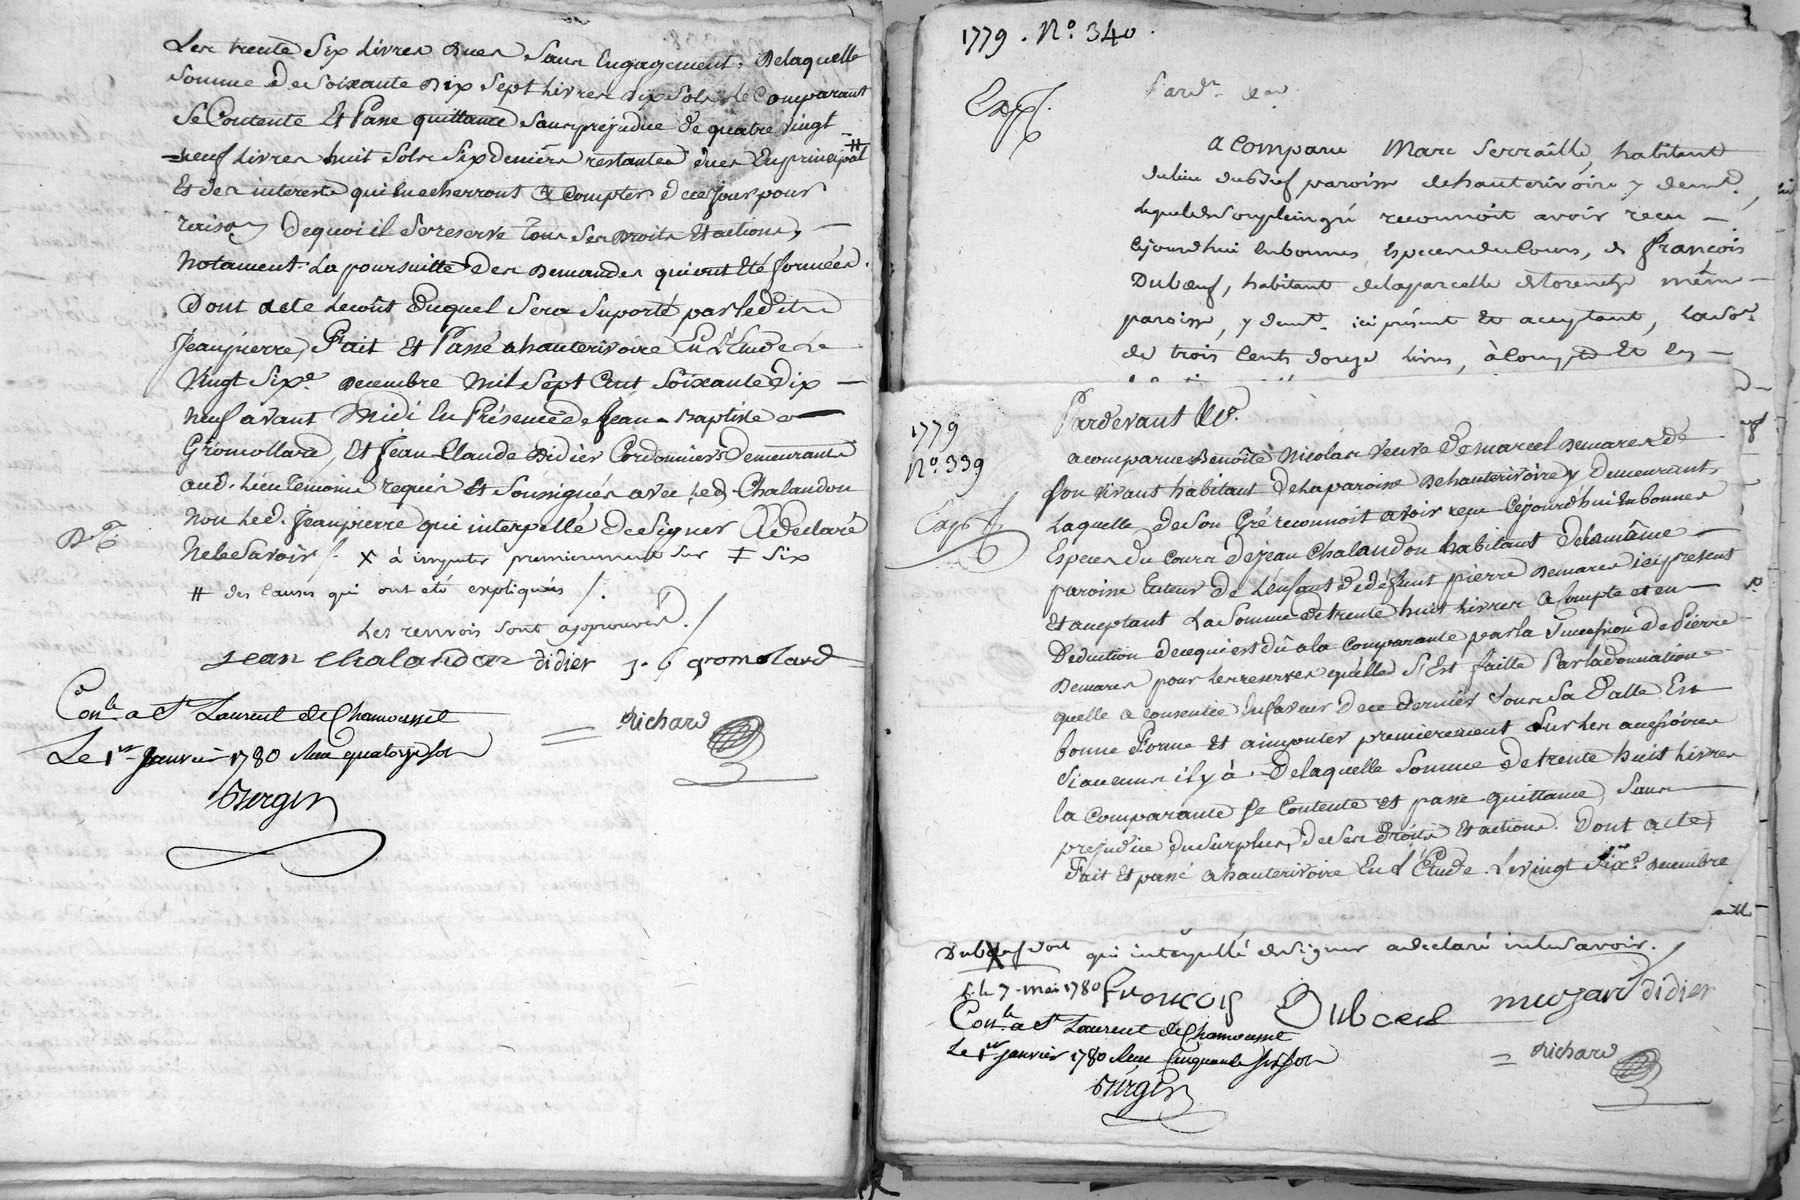 Les trente Six Livres dues Sans Engagement, Delaquelle
Somme de Soixante Dix Sept Livres dix Sols le Comparant
Se Contente Et Passe quittance Sans prejudice de quatre vingt
=neuf Livres huit Sols Six deniers restantes dues En principal #
Et des interests qui En echerront A Compter de ce jour pour
raison de quoi il Se reserve Tous Ses Droits Et actions,
Notament La poursuitte des Demandes qui ont Eté formées.
Dont acte Le coût Duquel Sera Suporté par led.
Jeanpierre, Fait Et Passé a hauterivoire En L'Etude Le
Vingt Six.e Decembre Mil Sept Cent Soixante Dix
Neuf avant Midi En Présence de Jean-Baptiste
Gromollard, Et Jean Claude Didier Cordonniers Demeurants
aud. Lieu Temoins requis Et Soussignés avec Led. Chalandon
Non Led. Jeanpierre qui interpellé de Signer A declaré
Ne le Savoir /. x à imputer premierement Sur ‡ Six
# des Causes qui ont été expliqués /.
Les renvois sont approuvés /.
jean chalandon didier j. b gromolard
Con.lé a St Laurent de Chamousset
Le 1er Janvier 1780 Reçu quatorze sols
Richard
Bergin
1779. N.o 340.
Exp.
Pard.t
A Comparu Marc Serraille, habitant
du lieu du Bief paroisse de hauterivoire y demt.,
lequel de Son plein gré reconnoit avoir reçu
cejourdhui En bonnes Especes du Cours, de François
Dubœuf, habitant de la parcelle de Lorenche même
paroisse, y demt. ici présent Et acceptant, La So.e
de trois Cents douze livres, à Compte Et En
1779
N.o 339
Exp.
Pardevant No.
a comparue Benoîte Nicolas Veuve De marcel Demares de
Son vivant habitant De la paroisse De hauterivoire y Demeurant,
Laquelle de Son Gré reconnoit avoir reçu Cejourd'hui En bonnes
Especes du Cours De jean Chalandon habitant De la même
paroisse tuteur De L'enfant De défunt pierre Demares ici present
Et acceptant La Somme De trente huit Livres a Compte et en
Deduction de ce qui est dû a la Comparante par la Succession De Pierre
Demares pour Les reserves qu'elle S'Est faitte Par la donnation
quelle a Consentie En faveur De ce dernier Sous Sa Datte En
bonne Forme Et a imputer premierement Sur Les
Si aucuns il y à. De laquelle Somme De trente huit Livres
la Comparante Se Contente Et passe quittance, Sans
prejudice du Surplus, De Ses Droits Et actions. Dont acte,
Fait Et passé a hauterivoire En L'Etude. Le vingt Six.e Decembre
Dubœuf qui interpellé de Signer a declaré ne le Savoir. /
le 7 mai 1780 François Dubœuf didier
Con.lé a St Laurent de Chamousset
Le 1er janvier 1780 Reçu Cinquante Six Sols
Richard
Bergin